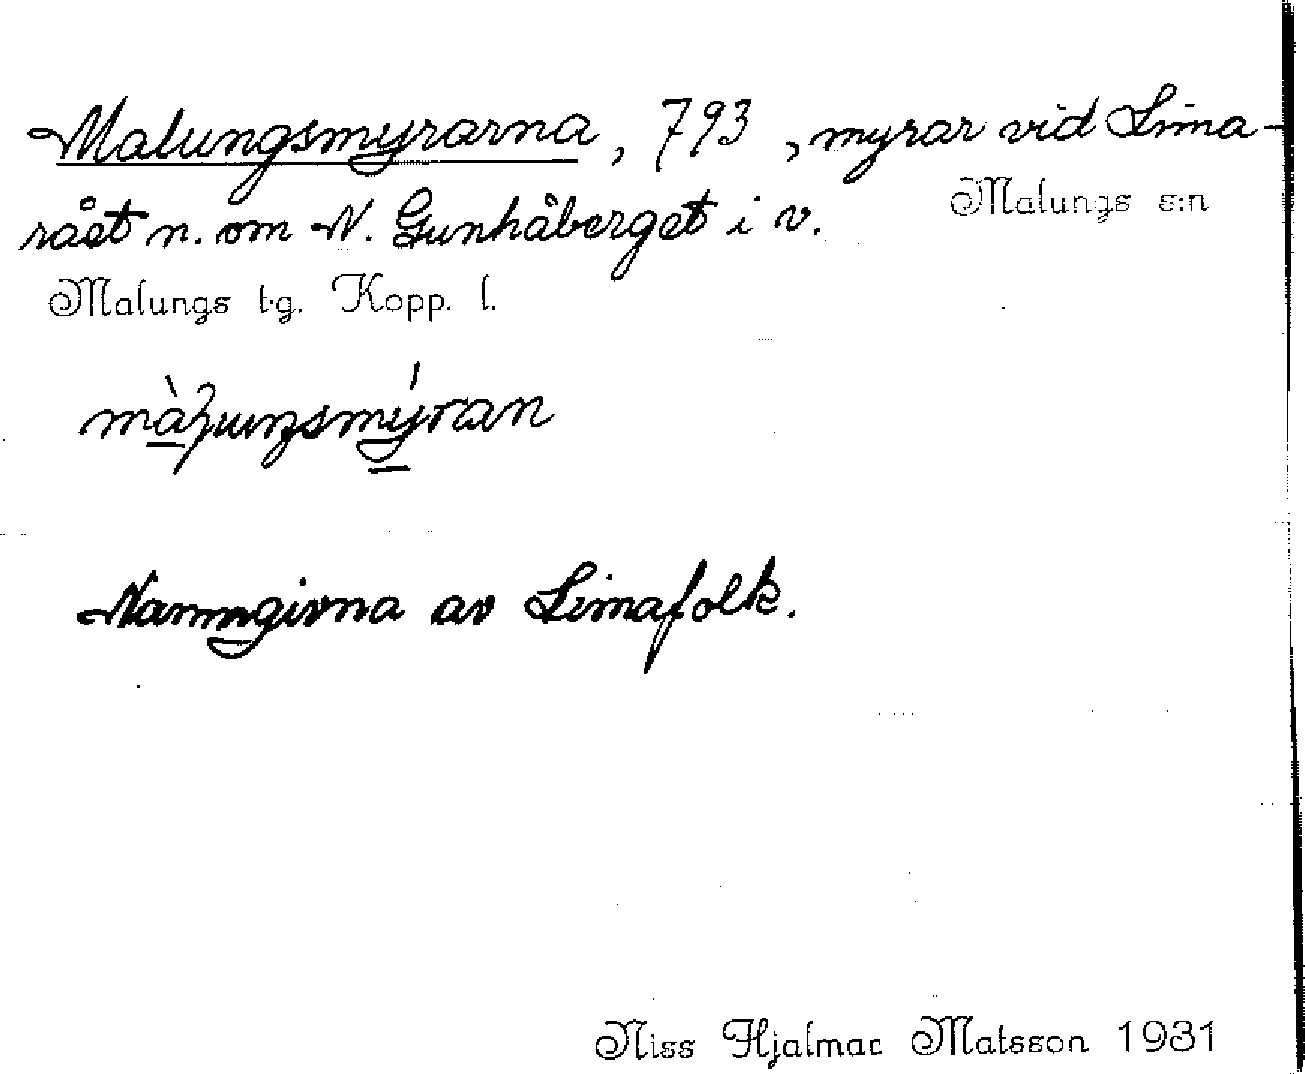 Malungsmyrarna, 793, myrar vid Lima-
rået n. om N. Gunhåberget i v.
Malungs s:n
Malungs t.g. Kopp. l.
Namngivna av Limafolk.
Niss Hjalmar Matsson 1931